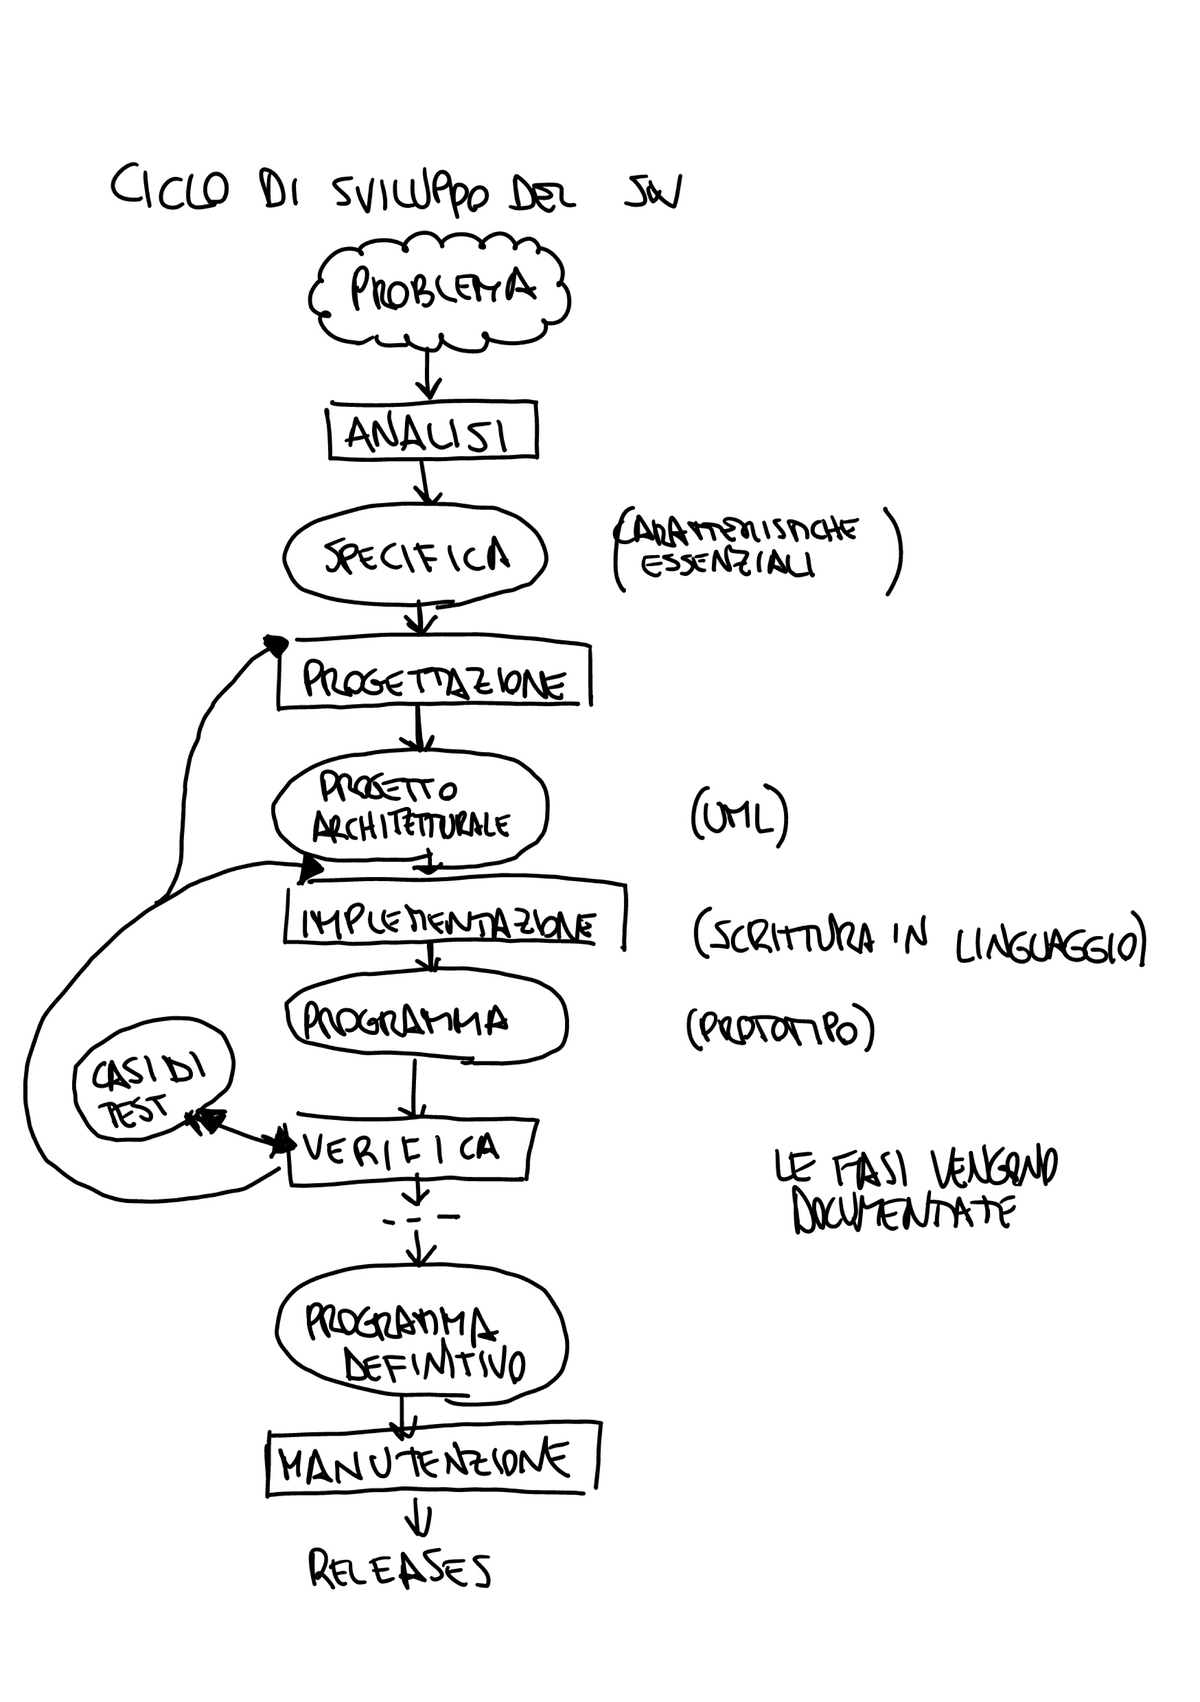 CICLO DI SVILUPPO DEL SW
PROBLEMA
ANALISI
SPECIFICA
(CARATTERISTICHE
ESSENZIALI)
PROGETTAZIONE
PROGETTO
ARCHITETTURALE
(UML)
IMPLEMENTAZIONE
(SCRITTURA IN LINGUAGGIO)
PROGRAMMA
(PROTOTIPO)
CASI DI
TEST
VERIFICA
LE FASI VENGONO
DOCUMENTATE
PROGRAMMA
DEFINITIVO
MANUTENZIONE
RELEASES